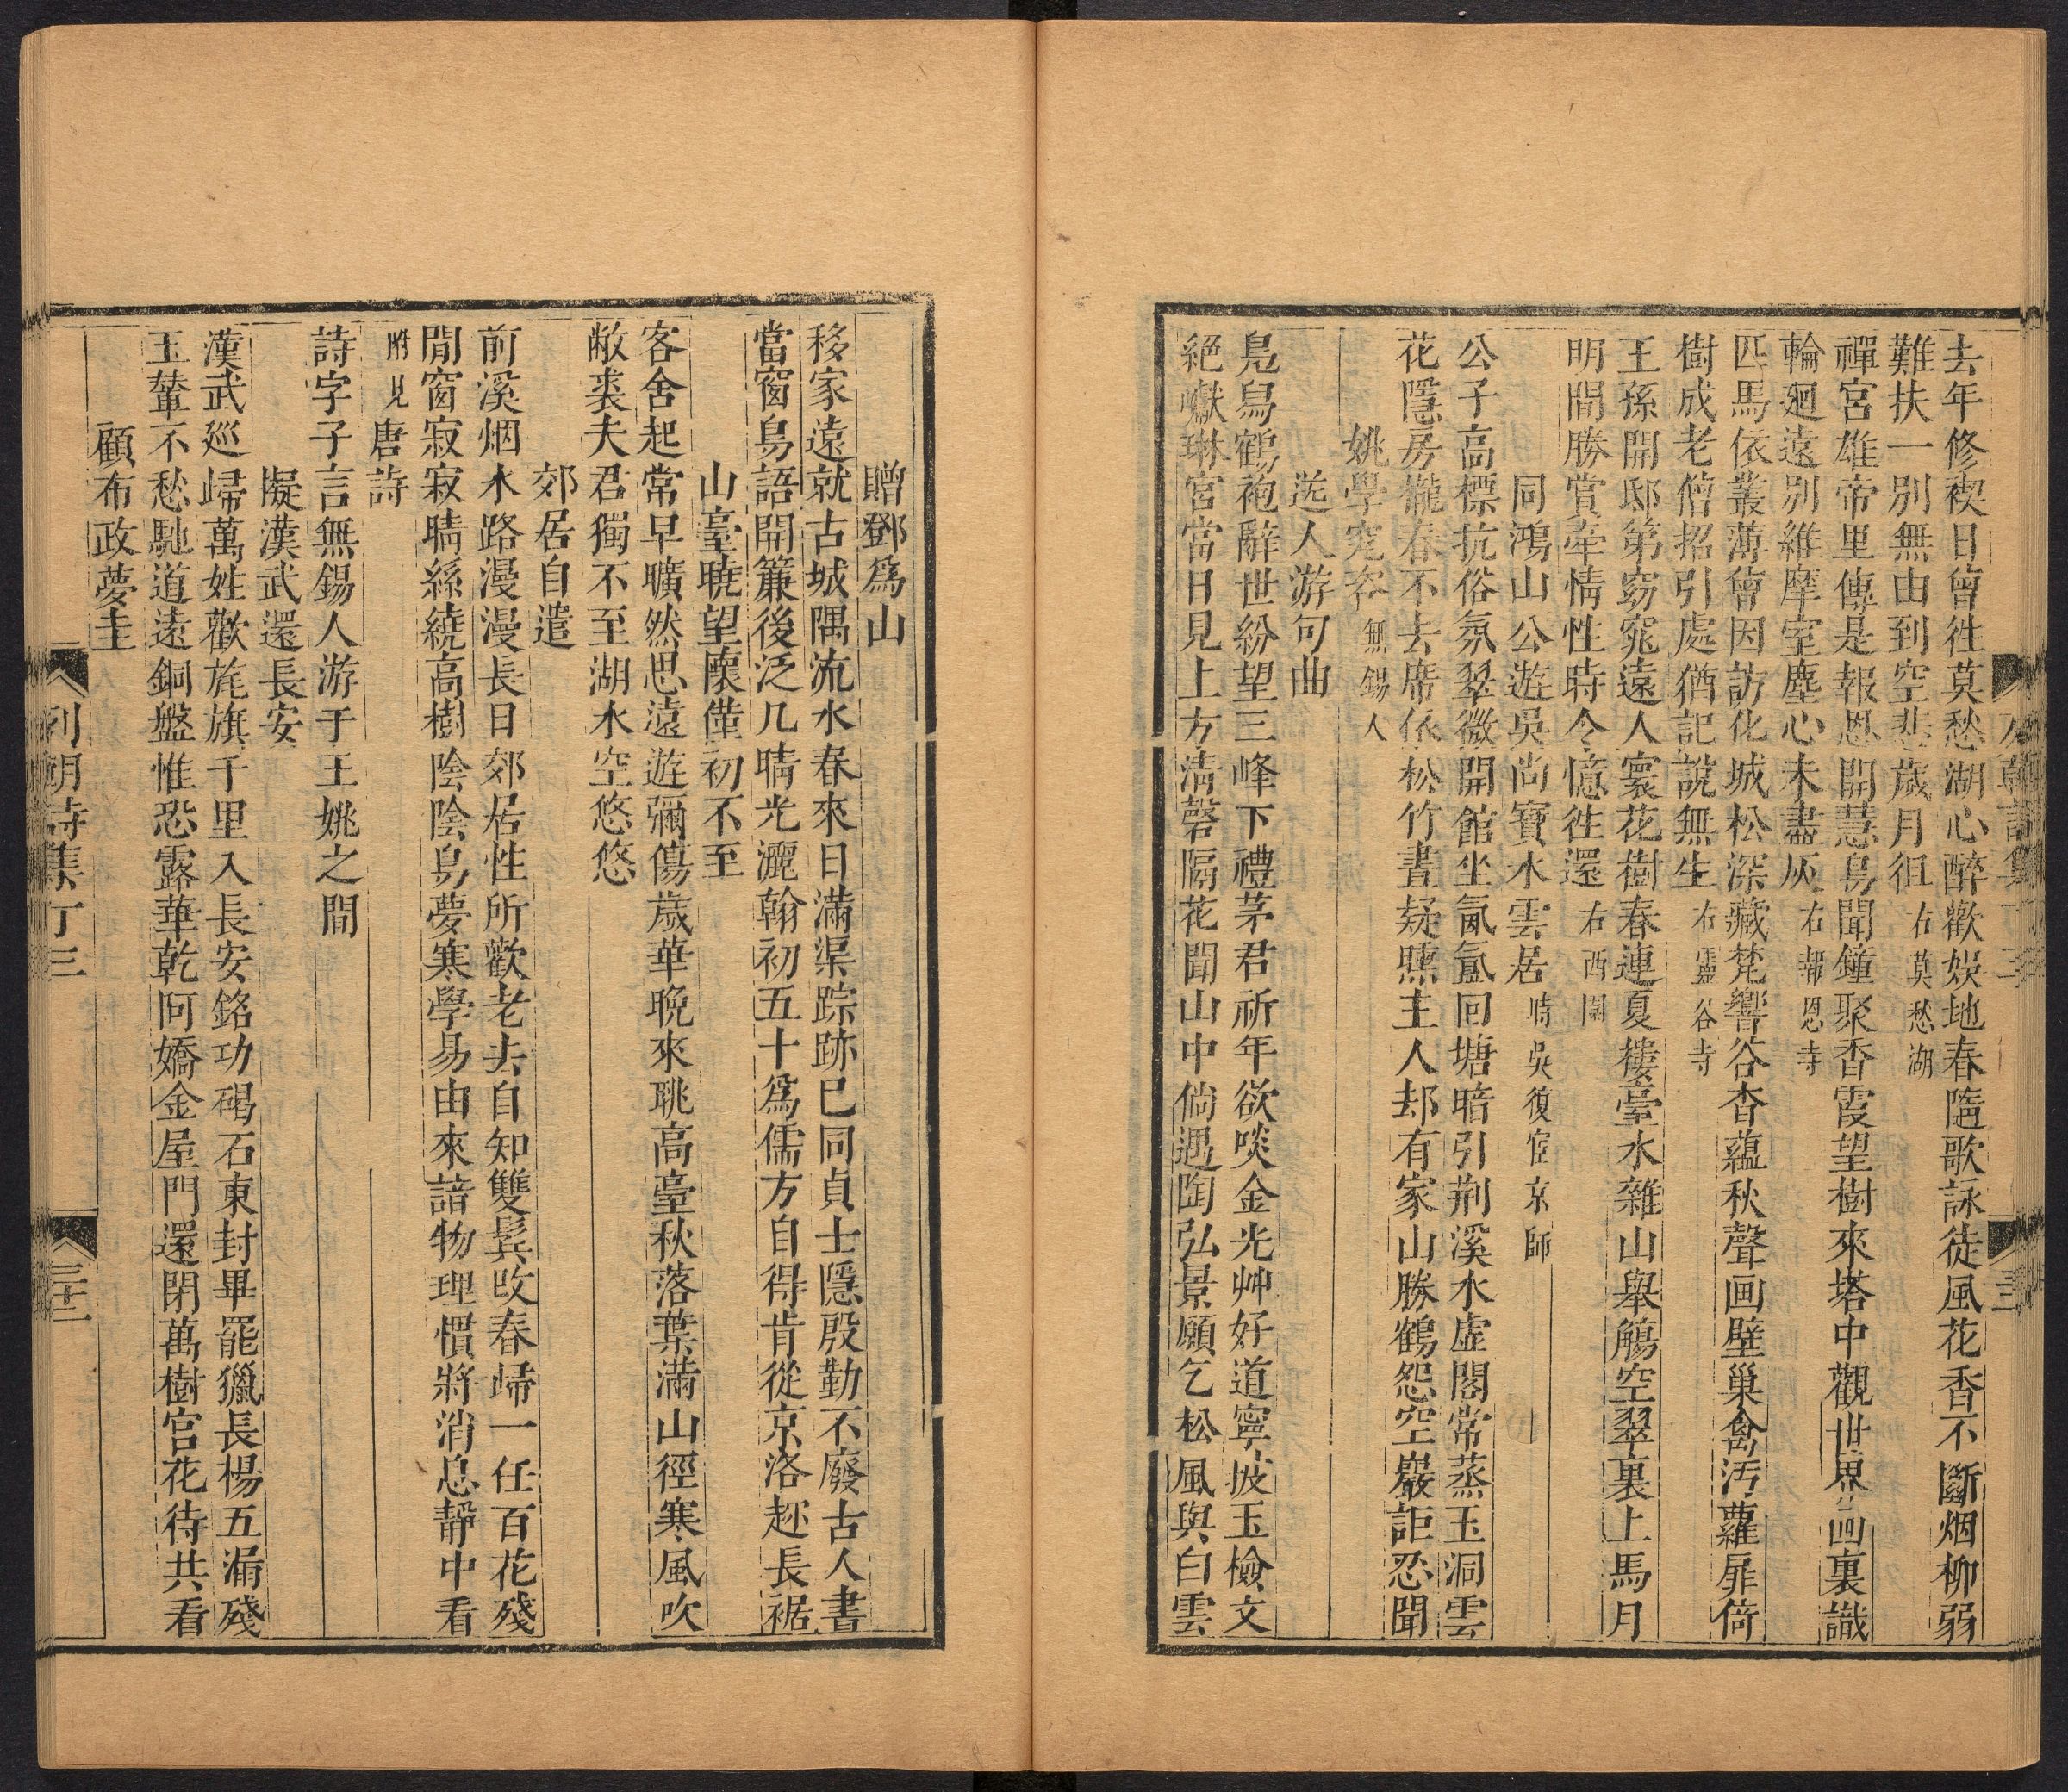 去年修禊日曾徃莫愁湖心醉歡娛地春隨歌詠徒風花香不斷烟柳弱
難扶一別無由到空悲歲月徂右莫愁湖
禪宮雄帝里傳是報恩開慧鳥聞鐘聚香霞望樹來塔中觀世界画裏識
輪廻遠別維摩室塵心未盡灰右報恩寺
匹馬依叢薄曾因訪化城松深藏梵響谷杳蘊秋聲画壁巢禽汚蘿扉倚
樹成老僧招引處猶記說無生右靈谷寺
王孫開邸第窈窕遠人寰花樹春連夏樓臺水雜山舉觴空翠裏上馬月
明間勝賞牽情性時今憶徃還右西園
同鴻山公遊吳尚寶水雲居時吳復宦京師
公子高標抗俗氛翠微開館坐氤氳回塘暗引荆溪水虛閣常蒸玉洞雲
花隱房櫳春不去席依松竹晝疑曛主人却有家山勝鶴怨空巖詎忍聞
姚學究咨無錫人
送人游句曲
鳬舄鶴袍辭世紛望三峰下禮茅君祈年欲啖金光艸好道寧披玉檢文
絕巘琳宮當日見上方清磬隔花聞山中倘遇陶弘景願乞松風與白雲
列朝詩集丁三
三
贈鄧爲山
移家遠就古城隅流水春來日滿渠踪跡已同貞士隱殷勤不廢古人書
當窗鳥語開簾後泛几晴光灑翰初五十爲儒方自得肯從京洛趂長裾
山臺曉望懷偉初不至
客舍起常早曠然思遠遊彌傷歲華晚來眺高臺秋落葉滿山徑寒風吹
敝裘夫君獨不至湖水空悠悠
郊居自遣
前溪烟水路漫漫長日郊居性所歡老去自知雙鬂改春歸一任百花殘
閒窗寂寂晴絲繞高樹陰陰鳥夢寒學易由來諳物理慣將消息靜中看
附見唐詩
詩字子言無錫人游于王姚之間
擬漢武還長安
漢武巡歸萬姓歡旄旗千里入長安銘功碣石東封畢罷獵長楊五漏殘
玉輦不愁馳道遠銅盤惟恐露華乾阿嬌金屋門還閉萬樹宮花待共看
顧布政夢圭
列朝詩集丁三